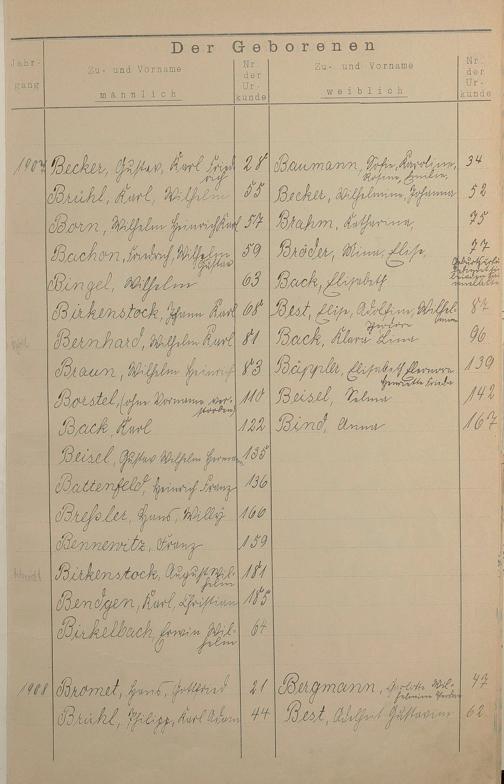 Der Geborenen
Jahr-
gang
Zu- und Vorname
männlich
Nr.
der
Ur-
kunde
Zu- und Vorname
weiblich
Nr.
der
Ur-
kunde
1907 Becker, Gustav, Karl Fried- 28 Baumann, Sofie, Karoline, 34
rich Rosine, Emilie
Brühl, Karl, Wilhelm 55 Becker, Wilhelmine, Johanna 52
Born, Wilhelm Heinrich Karl 57 Brahm, Katharina, 75
Bachon, Friedrich, Wilhelm 59 Bröder, Mina, Elise, 77
Gustav
Bingel, Wilhelm 63 Back, Elisabeth
Birkenstock, Johann Karl 68 Best, Elise, Adolfine, Wilhel- 87
Bernhard, Wilhelm Karl 81 Back, Klara Lina 96
Braun, Wilhelm Heinrich 83 Bäppler, Elisabeth Hermine 139
Henriette Frieda
Borstel, (ohne Vorname ver- 110 Beisel, Selma 142
storben)
Back, Karl 122 Bind, Anna 167
Beisel, Gustav Wilhelm Hermann 135
Battenfeld, Heinrich Franz 136
Breßler, Hans, Willy 166
Bennewitz, Franz 159
Birkenstock, August Wil- 181
helm
Bendgen, Karl, Christian 185
Birkelbach, Erwin Wil- 64
helm
1908 Bromet, Hans, Gottfried 21 Bergmann, Wil- 47
Brühl, Philipp, Karl Adam 44 Best, Adelheid Gustavine 62